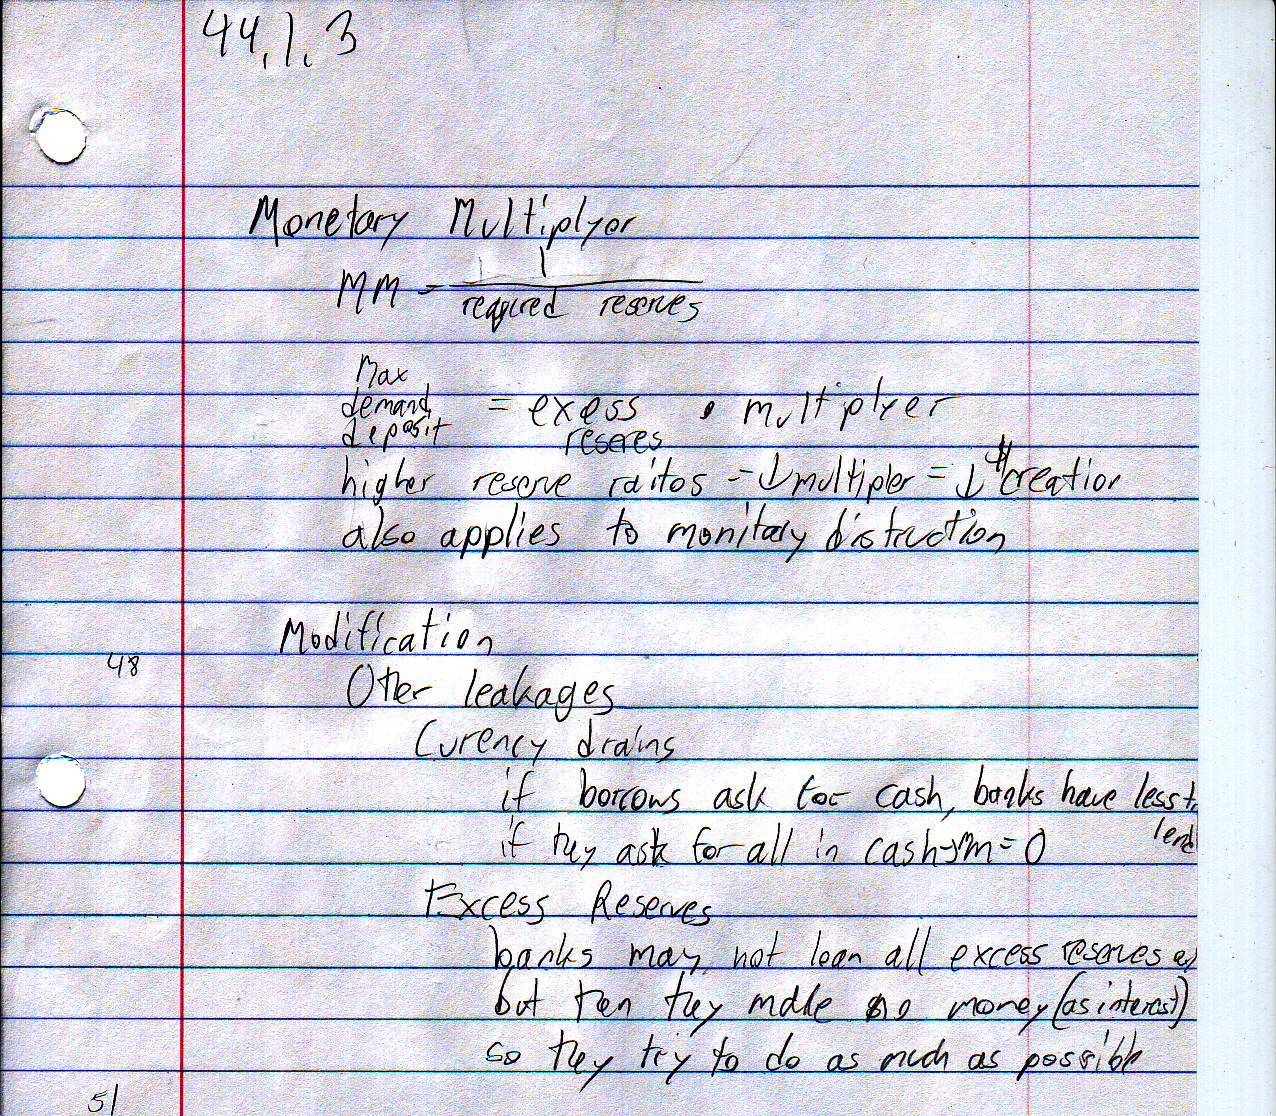 44.1.3
Monetary Multiplyer
MM = 1
required reserves
Max
demand
deposit
= exess
reseres
• multiplyer
higher reserve raitos = ↓multipler = ↓ $ creation
also applies to monitary distruction
Modification
48
Other leakages
Curency drains
if borrows ask for cash, banks have less to
lend
if they ask for all in cash→m=0
Excess Reserves
banks may not loan all excess reserves
but then they make no money (as interest)
so they try to do as much as possible
51